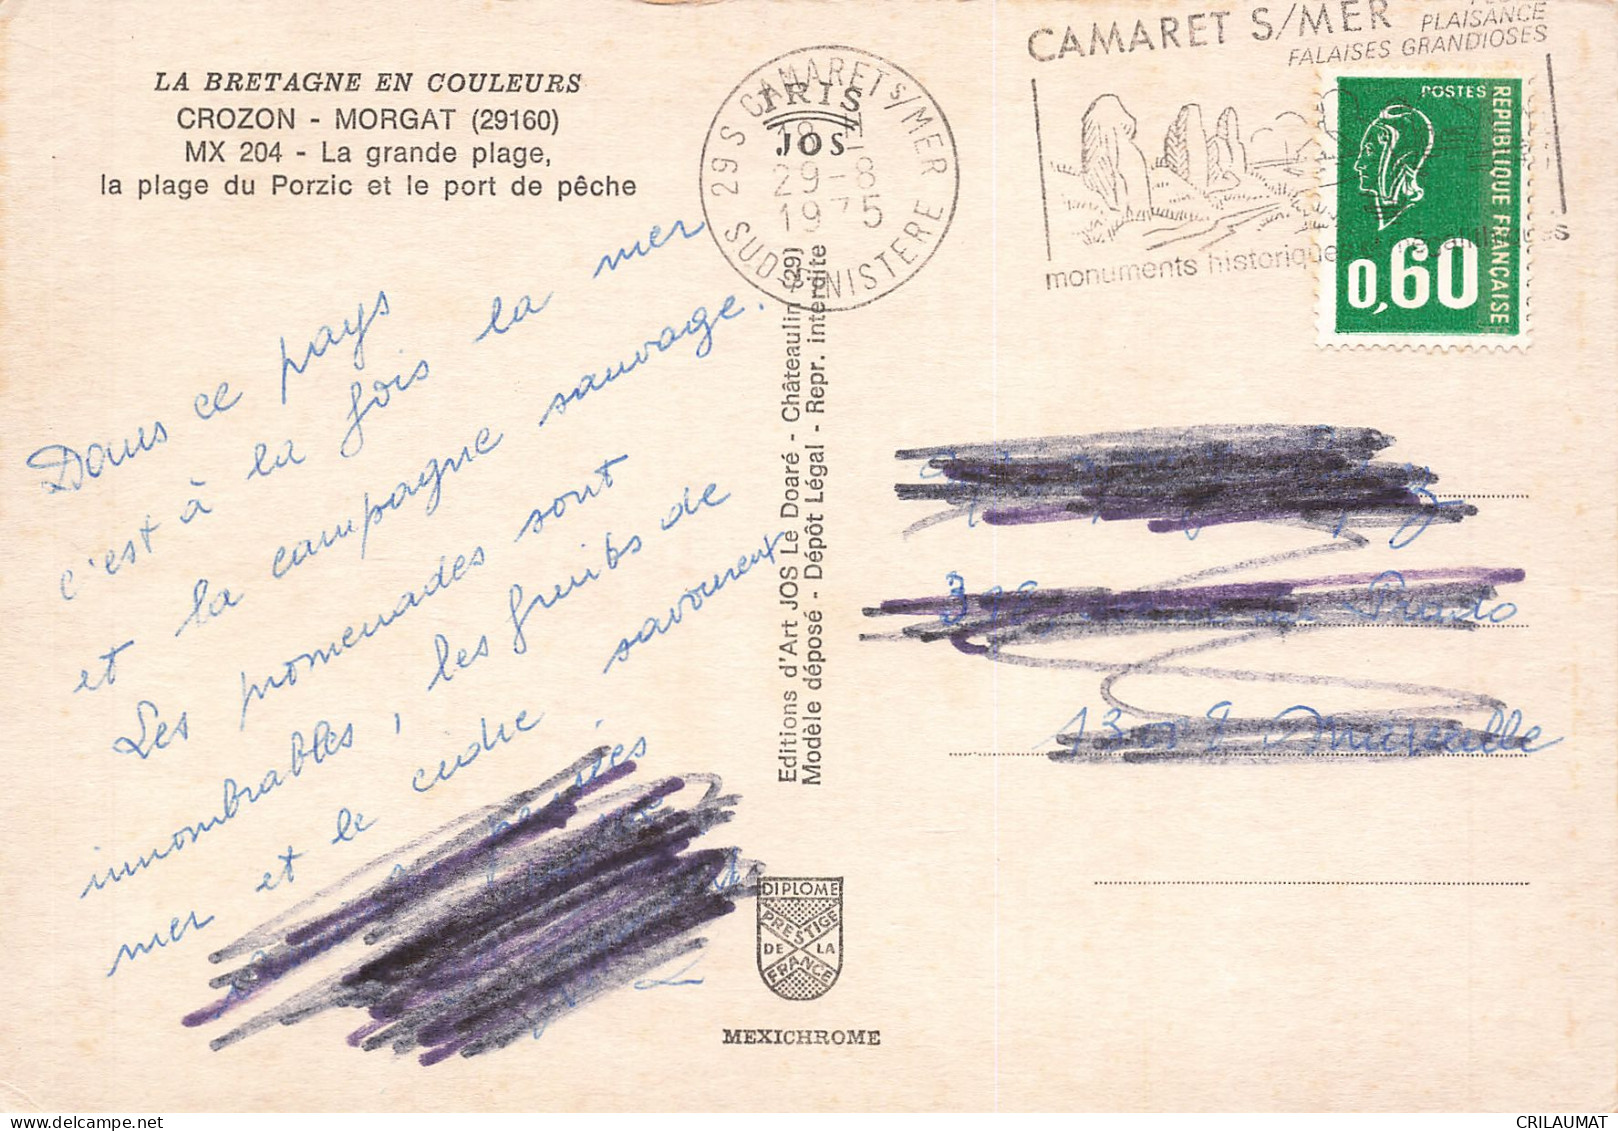 LA BRETAGNE EN COULEURS
CROZON - MORGAT (29160)
MX 204 - La grande plage,
la plage du Porzic et le port de pêche
Dans ce pays
c'est à la fois la mer
et la campagne sauvage.
Les promenades sont
innombrables, les fruits de
mer et le cidre savoureux
pensées
IRIS
JOS
29 S CAMARET S/MER
18 H
29-8
1975
SUD FINISTERE
Editions d'Art JOS Le Doaré - Châteaulin (29)
Modèle déposé - Dépôt Légal - Repr. interdite
DIPLOME
PRESTIGE
DE LA
FRANCE
MEXICHROME
CAMARET S/MER
PLAISANCE
FALAISES GRANDIOSES
monuments historiques
POSTES
REPUBLIQUE FRANÇAISE
0,60
Prado
13009 Marseille
CRILAUMAT